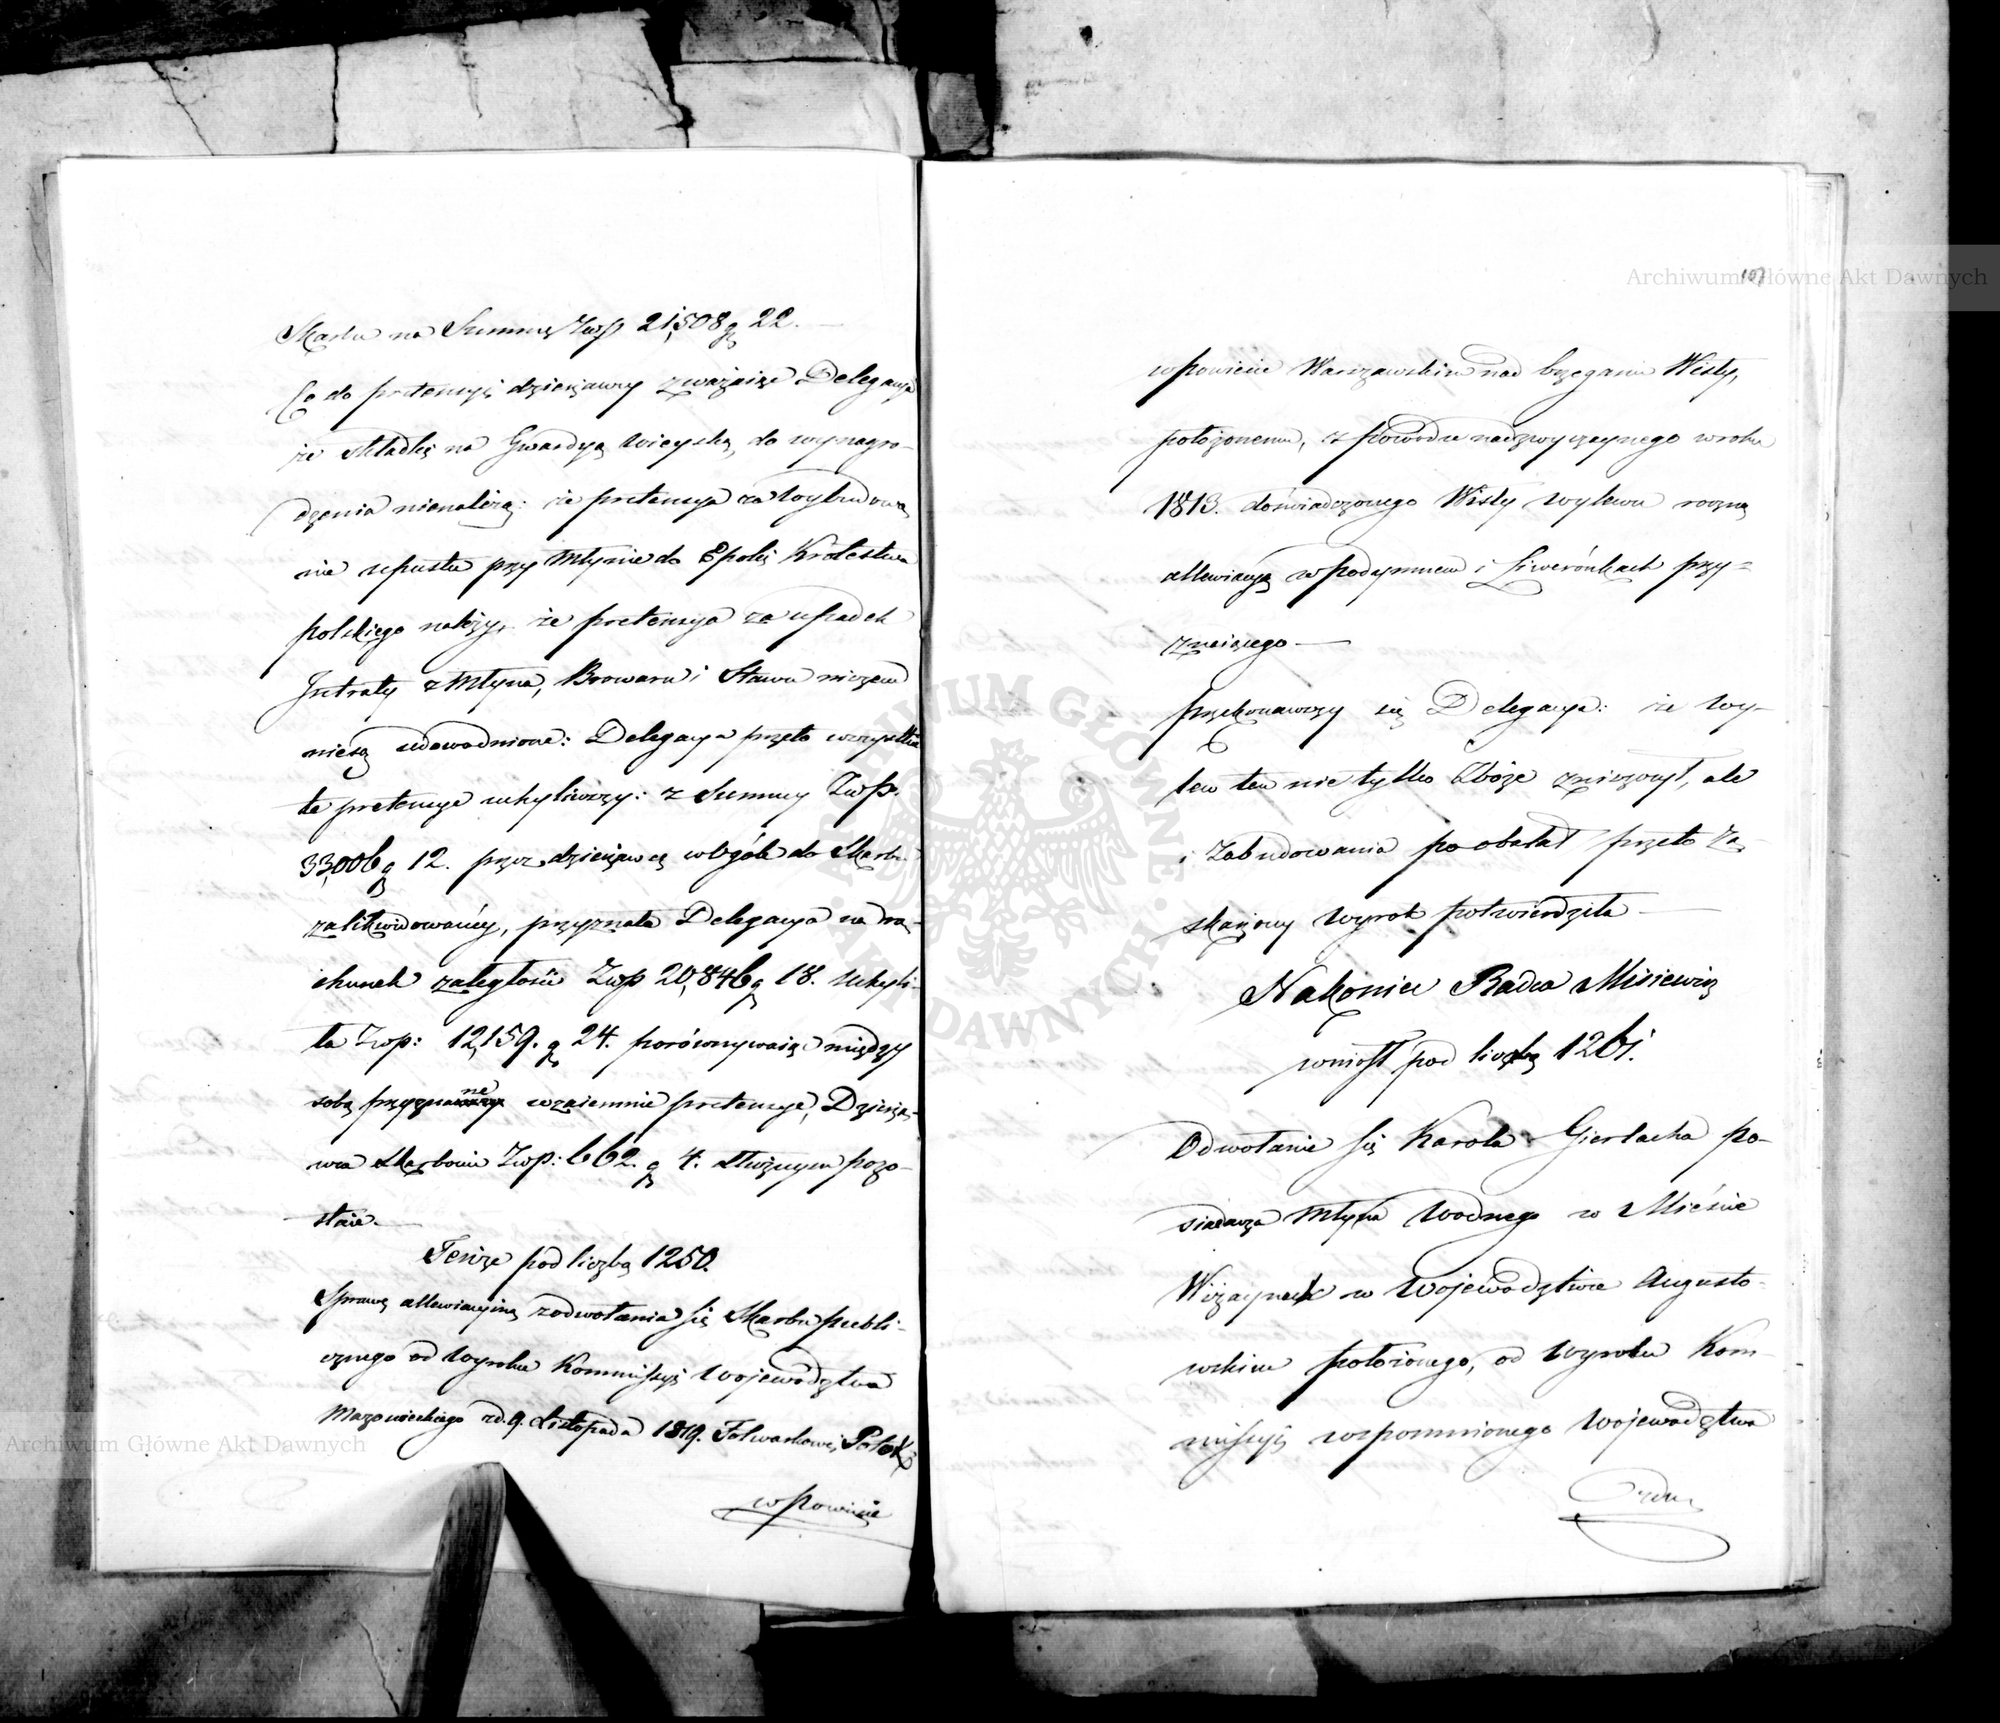 Skarbu na Summę Złp 21,508 g 22.
Co do pretensyi dzierżawcy zważaiąc Delegacya
że składki na Gwardyą Wieyską, do wynagro-
dzenia nienależą: że pretensya za wybudowa
nie upustu przy Młynie do Epoki Królestwa
polskiego należy, że pretensya za upadek
Intraty z Młyna, Browaru i Stawu niczem
niesą udowodnione: Delegacya przeto wszystkie
te pretensye uchyliwszy: z Summy Złp.
33,006 g 12. przez dzierżawcę wogóle do Skarbu
zalikwidowaney, przyznała Delegacya na ra-
chunek zaległości Złp 20,846 g 18. uchyli-
ła Złp: 12,159. g 24. porównywaiąc między
sobą przyznane wzaiemnie pretensye, Dzierża-
wca Skarbowi Złp: 662. g 4. dłużnym pozo-
staie.
Tenże pod liczbą 1250.
Sprawę allewiacyiną z odwołania się Skarbu publi-
cznego od Wyroku Kommissyi Województwa
Mazowieckiego z d. 9. Listopada 1819. Folwarkowi Potok
w Powiecie
107
w Powiecie Warszawskim nad brzegami Wisły,
położonemu, z powodu nadzwyczaynego w roku
1813. doświadczonego Wisły wylewu roczną
allewiacyą w Podymnem i Liwerónkach przy-
znaiącego
przekonawszy się Delegacya: że wy-
lew ten nie tylko Zboże zniszczył, ale
i Zabudowania poobalał przeto za-
skarżony Wyrok potwierdziła
Nakoniec Radca Misiewicz
wniósł pod liczbą 1261.
Odwołanie się Karola Gierlacha po-
siadacza Młyna Wodnego w Mieście
Wiżaynach w Województwie Augusto-
wskim położonego, od Wyroku Kom-
missyi wspomnionego Województwa
Archiwum Główne Akt Dawnych
Archiwum Główne Akt Dawnych
ARCHIWUM GŁÓWNE AKT DAWNYCH